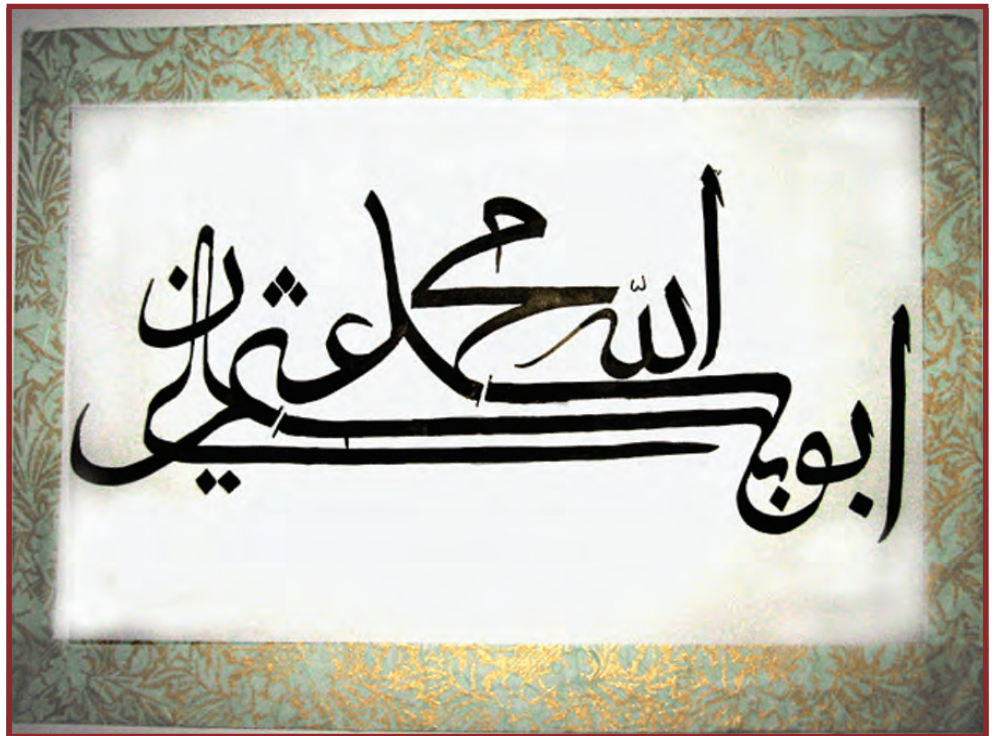 الله محمد
ابوبكر عثمان علي